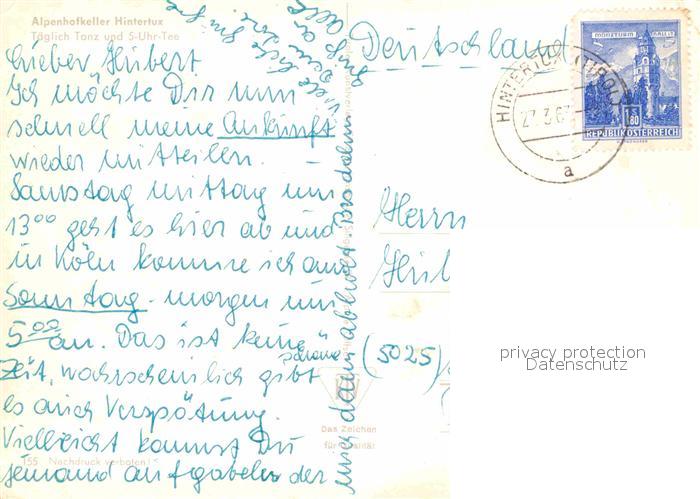 Alpenhofkeller Hintertux
Täglich Tanz und 5-Uhr-Tee
Lieber Hubert
Ich möchte Dir nun
schnell meine Ankunft
wieder mitteilen.
Samstag mittag um
13⁰⁰ geht es hier ab und
in Köln komme ich am
Sonntag morgen um
5⁰⁰ an. Das ist keine
schöne
Zeit, wahrscheinlich gibt
es auch Verspätung.
Vielleicht kannst Du
jemand aufgabeln der
mich dann abholt.
viele liebe Grüße
Deutschland
HINTERTUX (TIROL)
27.3.6
a
MÜNZTURM HALL i. T.
1.80
REPUBLIK ÖSTERREICH
Herrn
Hu
(5025)
privacy protection
Datenschutz
Das Zeichen
für Qualität
155 Nachdruck verboten!